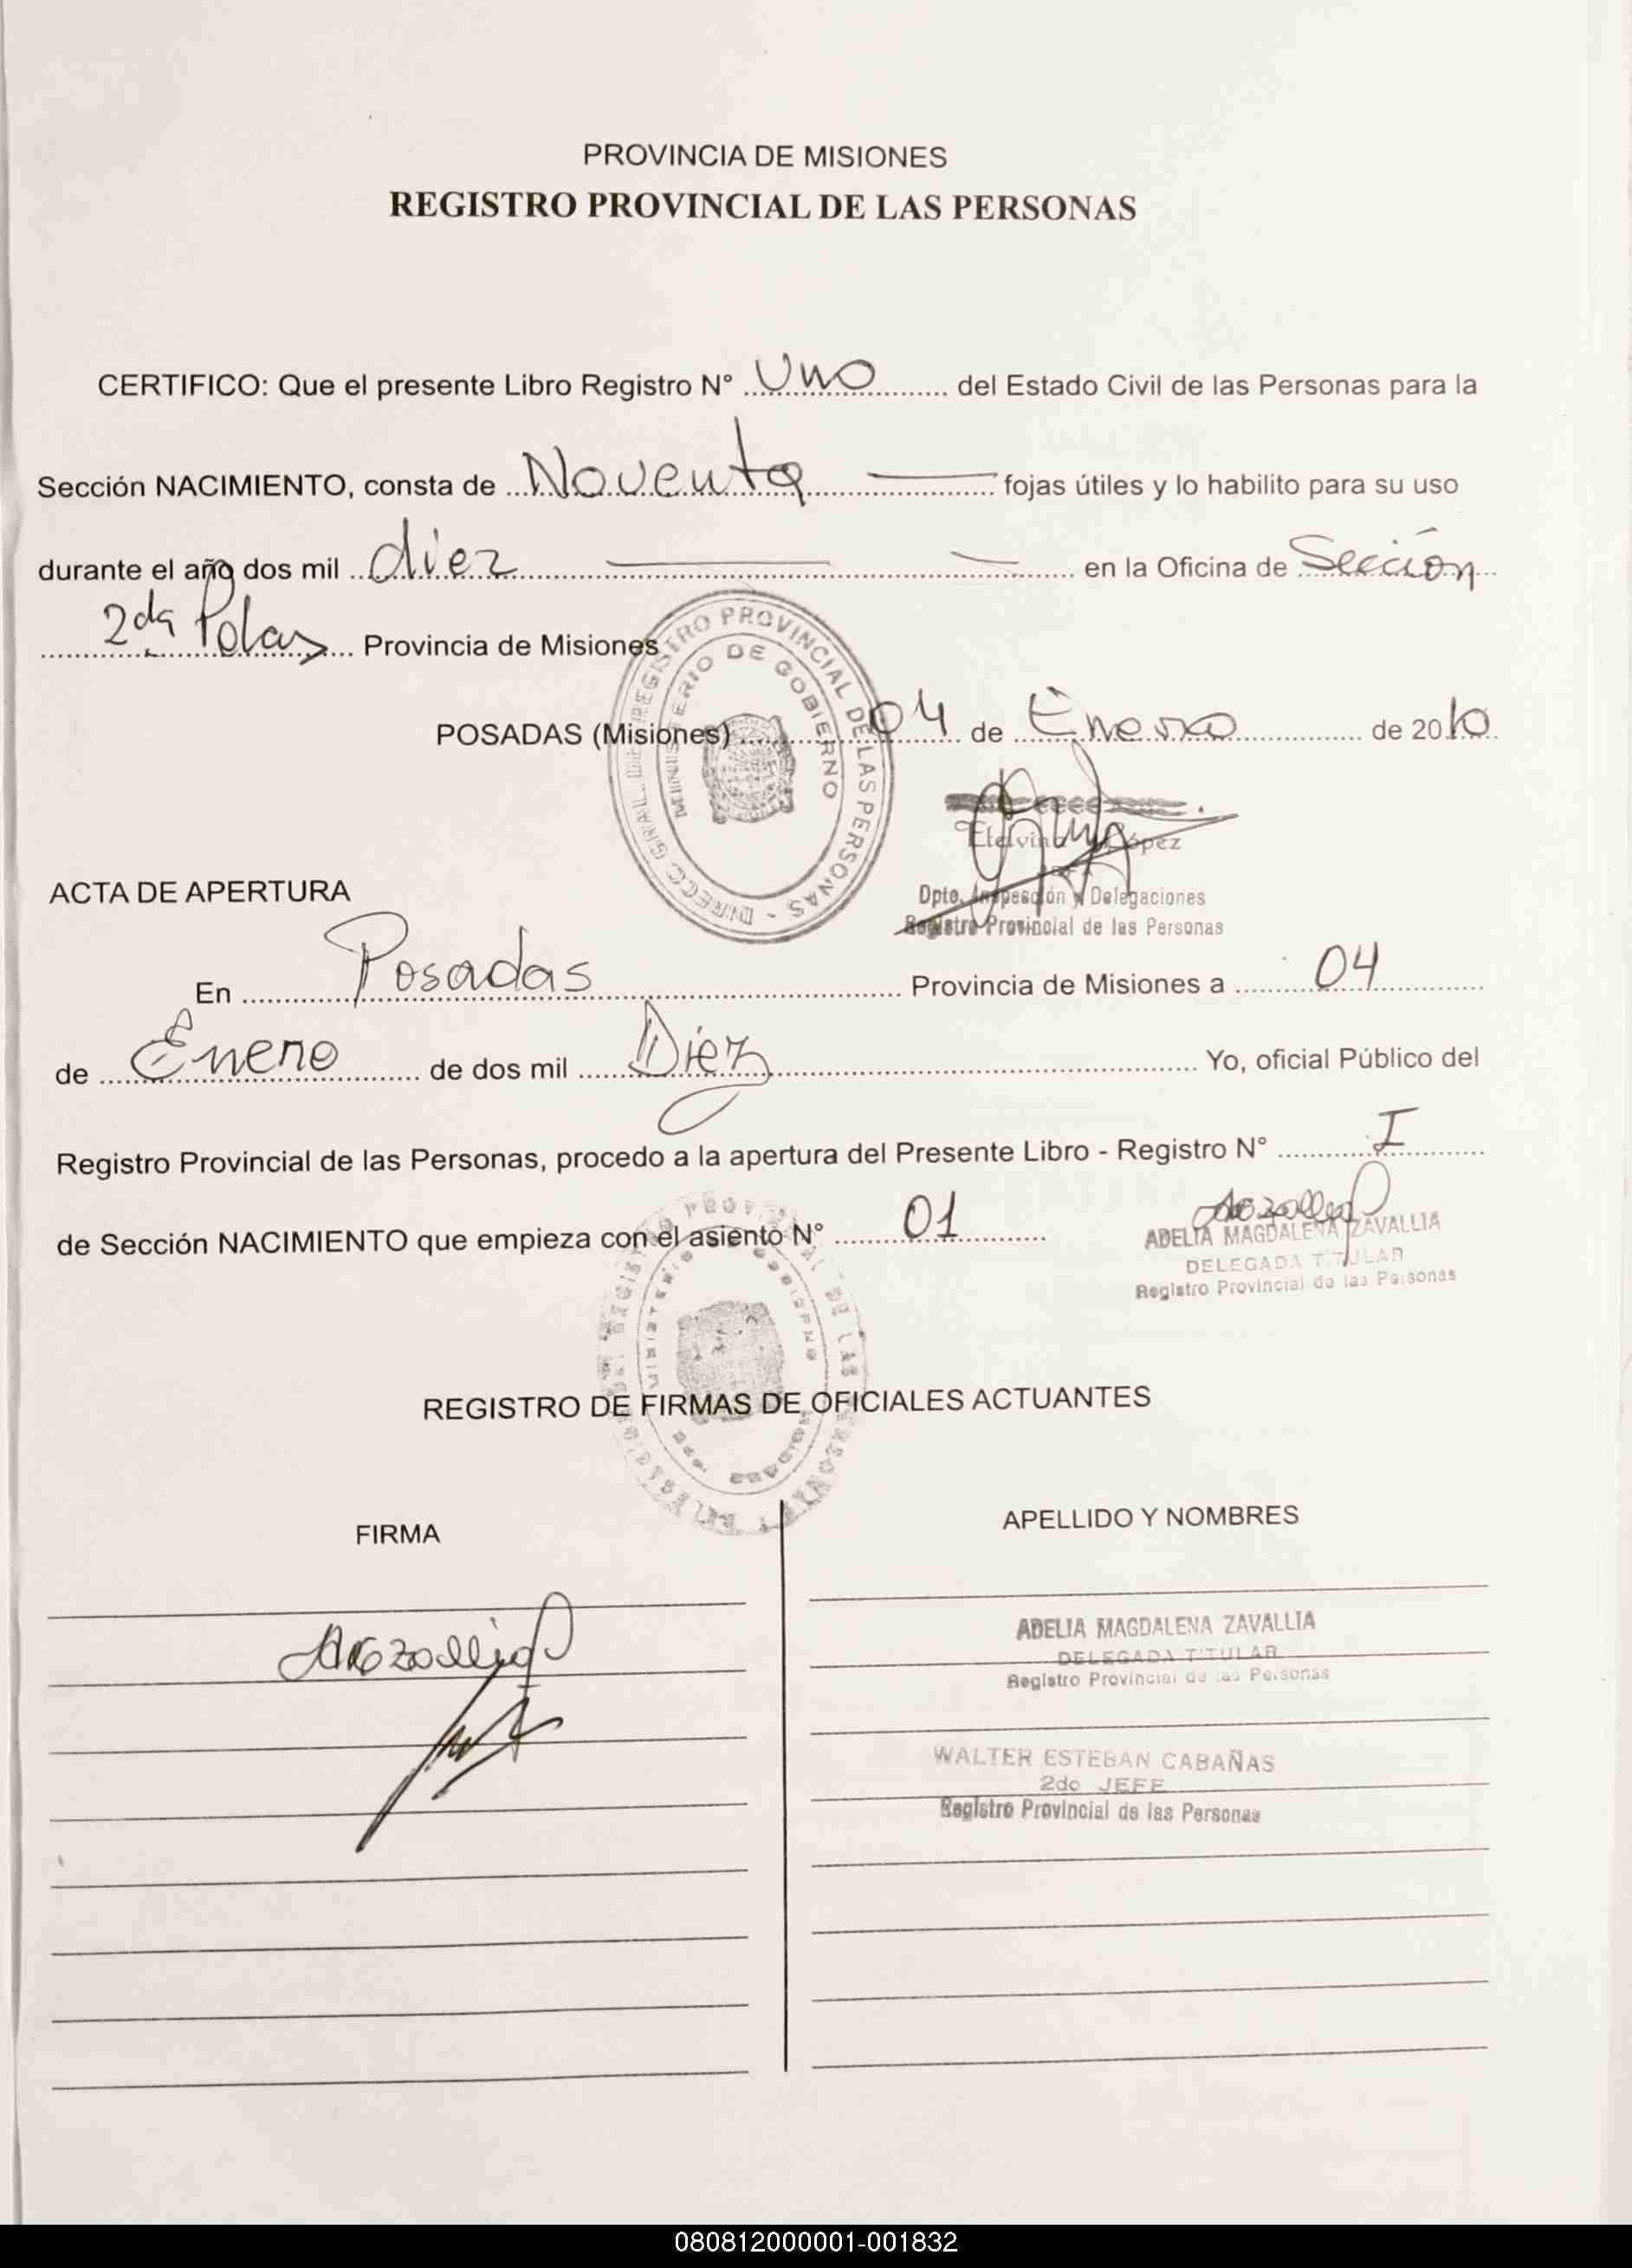 PROVINCIA DE MISIONES
REGISTRO PROVINCIAL DE LAS PERSONAS
CERTIFICO: Que el presente Libro Registro N° Uno del Estado Civil de las Personas para la
Sección NACIMIENTO, consta de Noventa fojas útiles y lo habilito para su uso
durante el año dos mil diez en la Oficina de Sección
2da Pdas Provincia de Misiones
DIRECC. GRAL. DEL REGISTRO PROVINCIAL DE LAS PERSONAS
MINISTERIO DE GOBIERNO
POSADAS (Misiones) 04 de Enero de 2010
Etelvina López
Dpto. Inspección y Delegaciones
Registro Provincial de las Personas
ACTA DE APERTURA
En Posadas Provincia de Misiones a 04
de Enero de dos mil Diez Yo, oficial Público del
Registro Provincial de las Personas, procedo a la apertura del Presente Libro - Registro N° I
de Sección NACIMIENTO que empieza con el asiento N° 01
ADELIA MAGDALENA ZAVALLIA
DELEGADA TITULAR
Registro Provincial de las Personas
REGISTRO DE FIRMAS DE OFICIALES ACTUANTES
FIRMA
APELLIDO Y NOMBRES
ADELIA MAGDALENA ZAVALLIA
DELEGADA TITULAR
Registro Provincial de las Personas
WALTER ESTEBAN CABAÑAS
2do JEFE
Registro Provincial de las Personas
080812000001-001832